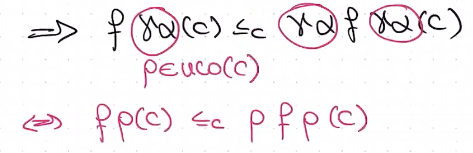 ⇒ f γα(c) ≤c γα f γα(c)
ρ∈uco(C)
⇔ f ρ(c) ≤c ρ f ρ(c)